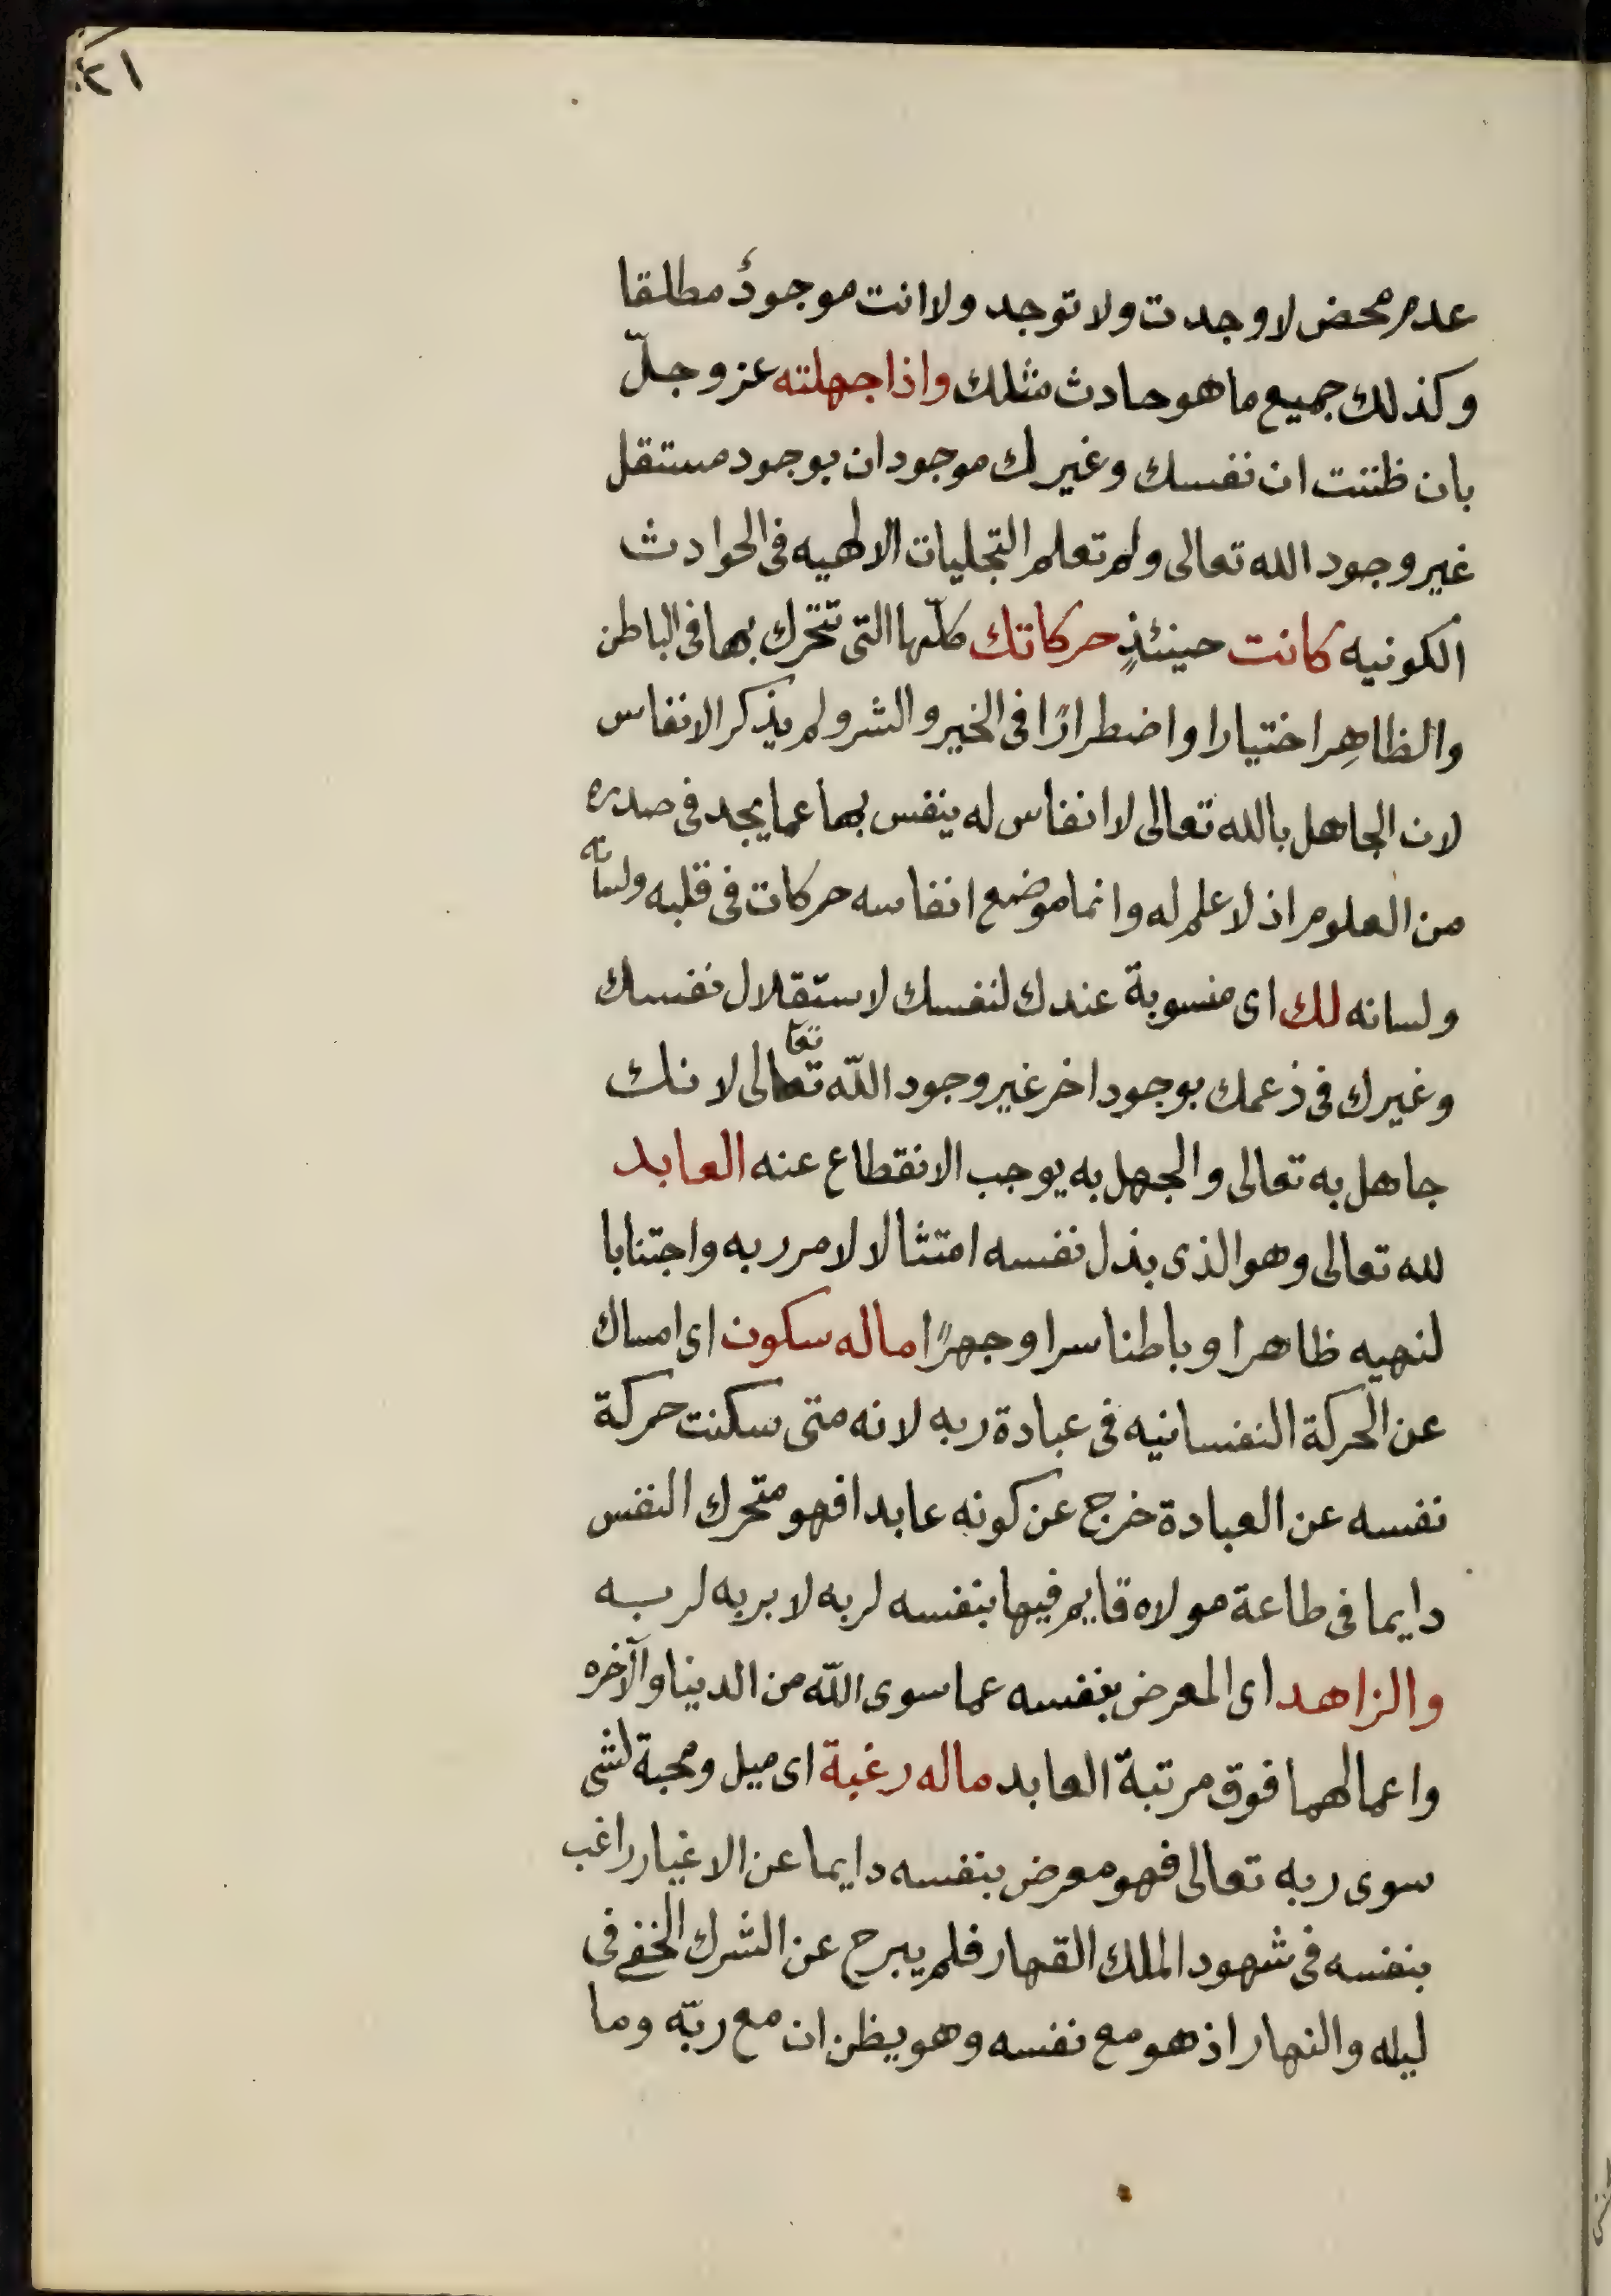 ٢١
عدم محض لا وجدت ولا توجد ولا انت موجودٌ مطلقا
وكذلك جميع ما هو حادث مثلك واذا جهلته عز وجلّ
بان ظننت ان نفسك وغيرك موجودان بوجود مستقل
غير وجود الله تعالى ولم تعلم التجليات الالهيه فى الحوادث
الكونيه كانت حينئذٍ حركاتك كلّها التى تتحرّك بها فى الباطن
والظاهِر اختيارا واضطرارًا فى الخير والشر ولم يذكر الانفاس
لان الجاهل بالله تعالى لا انفاس له ينفس بها عما يجد فى صدره
من العلوم اذ لا علم له وانما موضع انفاسه حركات فى قلبه ولسانه
ولسانه لك اى منسوبة عندك لنفسك لاستقلال نفسك
وغيرك فى زعمك بوجود اخر غير وجود اللّه تعالى لانك
جاهل به تعالى والجهل به يوجب الانقطاع عنه العابد
لله تعالى وهو الذى بذل نفسه امتثالا لامر ربه واجتنابا
لنهيه ظاهرا وباطنا سرا وجهرًا ماله سكون اى امساك
عن الحركة النفسانيه فى عبادة ربه لانه متى سكنت حركة
نفسه عن العبادة خرج عن كونه عابدا فهو متحرك النفس
دايما فى طاعة مولاه قايم فيها بنفسه لربه لا بربه لربه
والزاهد اى المعرض بنفسه عما سوى اللّه من الدينا والآخره
واعمالهما فوق مرتبة العابد ماله رغبة اى ميل ومحبة لشى
سوى ربه تعالى فهو معرض بنفسه دايما عن الاغيار راغب
بنفسه فى شهود الملك القهار فلم يبرح عن الشرك الخفى فى
ليله والنهار اذ هو مع نفسه وهو يظن ان مع ربّه وما